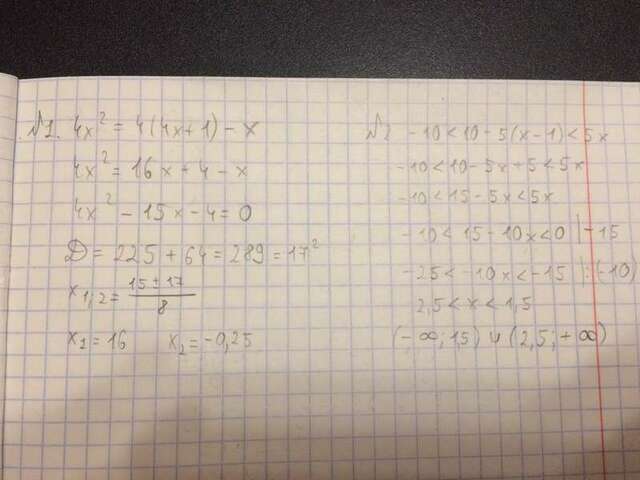 №1. 4x² = 4(4x+1) - x
4x² = 16x + 4 - x
4x² - 15x - 4 = 0
D = 225 + 64 = 289 = 17²
x₁,₂ = (15 ± 17)/8
x₁ = 16 x₂ = -0,25
№2 -10 < 10 - 5(x-1) < 5x
-10 < 10 - 5x + 5 < 5x
-10 < 15 - 5x < 5x
-10 < 15 - 10x < 0 | -15
-25 < -10x < -15 | : (-10)
2,5 < x < 1,5
(-∞; 1,5) ∪ (2,5; +∞)